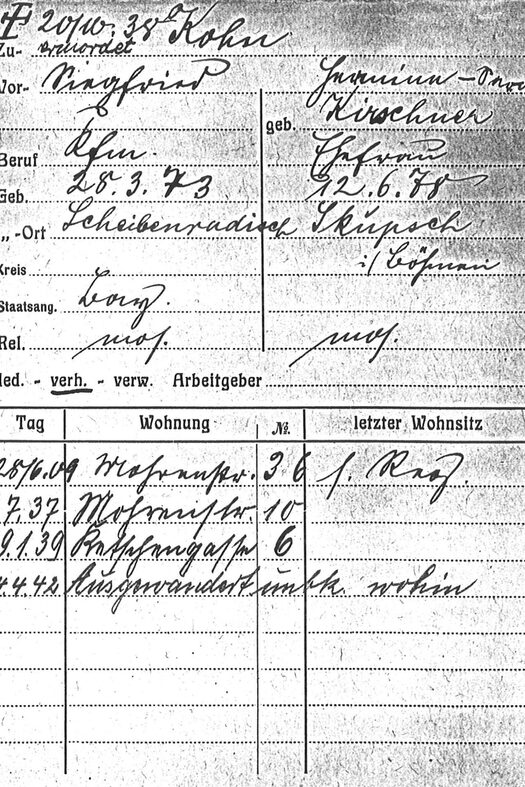 20/10. 38 Kohn
Zu- ermordet
Vor- Siegfried Hermine -
geb. Kirschner
Beruf Kfm. Ehefrau
Geb. 28. 3. 73 12. 6. 78
„ -Ort Scheibenradisch Skupsch
Kreis i/ Böhmen
Staatsang. Bay.
Rel. mos. mos.
led. - verh. - verw. Arbeitgeber
Tag Wohnung №. letzter Wohnsitz
28/6.09 Mohrenstr. 36 s. Reg.
7.37 Mohrenstr. 10
9.1.39 Ketschengasse 6
4.4.42 Ausgewandert unbk. wohin